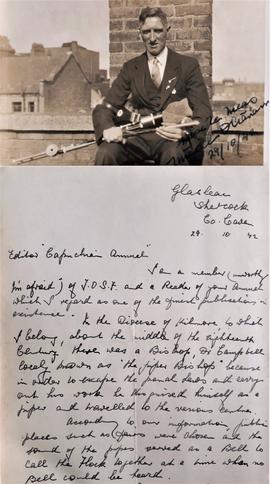 29/10/42
Shercock
Co. Cavan
29. 10 42
Editor "Capuchin Annual"
I am a member (unworthy
I'm afraid) of T.O.S.F. and a Reader of your Annual
which I regard as one of the finest publications in
existence.
In the Diocese of Kilmore to which
I belong, about the middle of the Eighteenth
Century there was a Bishop, Dr Campbell
localy known as "the piper Bishop" because
in order to escape the penal laws and carry
out his work he disguised himself as a
piper and travelled to the various centres.
According to our information public
places such as fairs were chosen and the
sound of the pipes served as a Bell to
call the Flock together at a time when no
Bell could be heard.